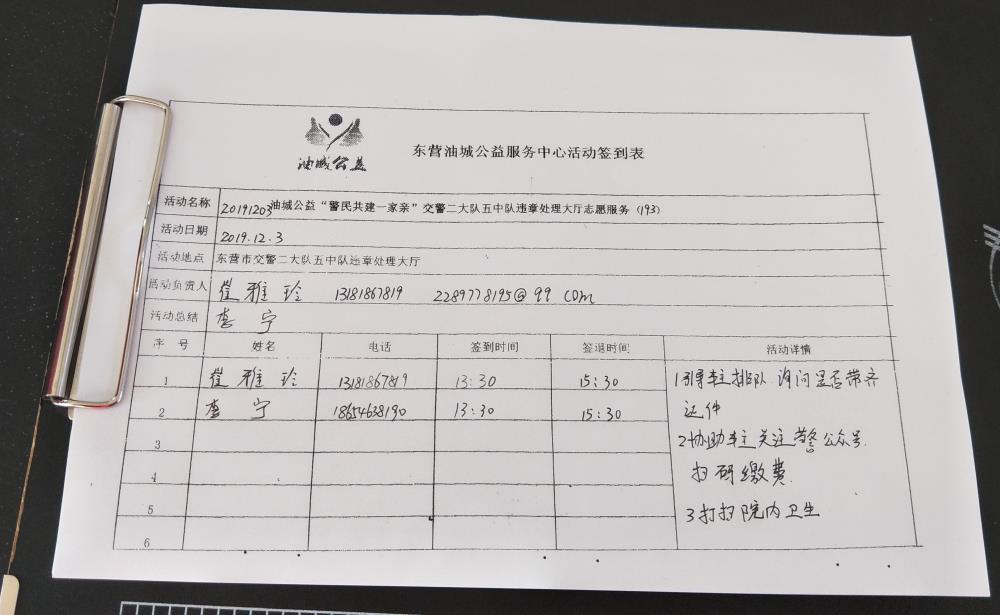 油城公益
东营油城公益服务中心活动签到表
活动名称 20191203油城公益“警民共建一家亲”交警二大队五中队违章处理大厅志愿服务(193)
活动日期 2019.12.3
活动地点 东营市交警二大队五中队违章处理大厅
活动负责人 崔雅玲 13181867819 2289778195@qq com
活动总结 李宁
序号 姓名 电话 签到时间 签退时间 活动详情
1 崔雅玲 13181867819 13:30 15:30
2 李宁 18654638190 13:30 15:30
3
4
5
6
1引导车主排队 询问是否带齐
证件
2协助车主关注警公众号
扫码缴费
3打扫院内卫生